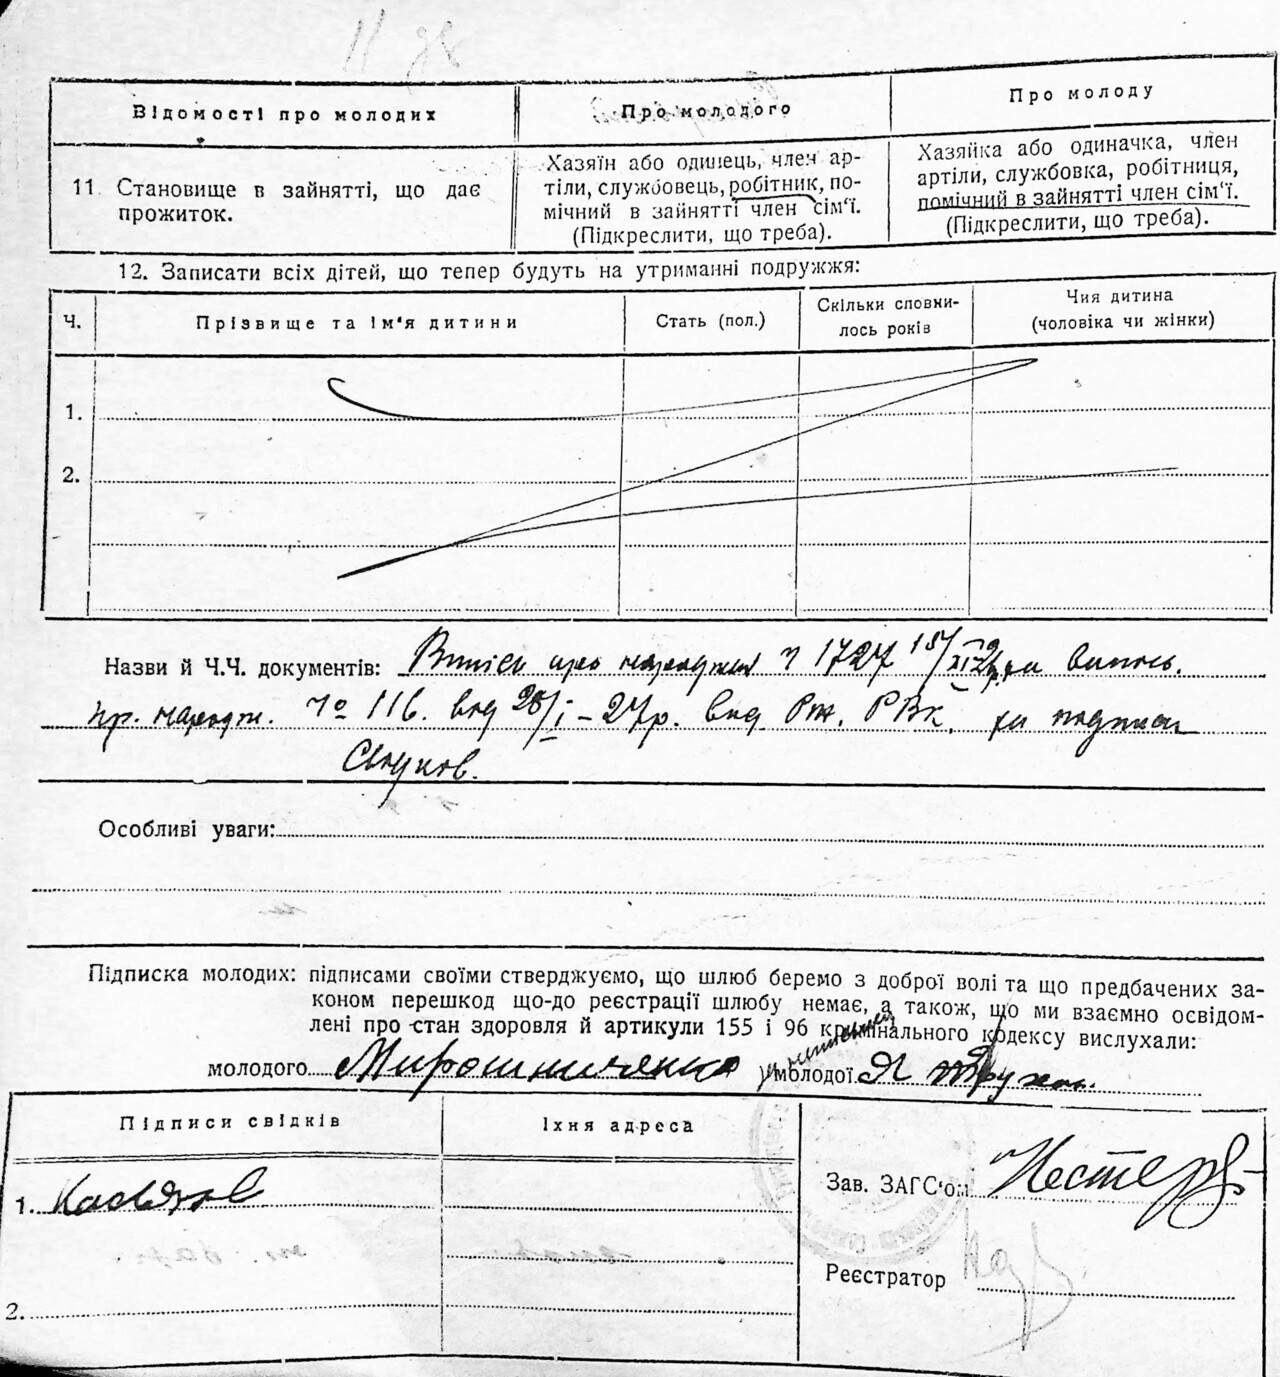 Відомості про молодих
Про молодого
Про молоду
11. Становище в зайнятті, що дає
прожиток.
Хазяїн або одинець, член ар-
тіли, службовець, робітник, по-
мічний в зайнятті член сім'ї.
(Підкреслити, що треба).
Хазяйка або одиначка, член
артіли, службовка, робітниця,
помічний в зайнятті член сім'ї.
(Підкреслити, що треба).
12. Записати всіх дітей, що тепер будуть на утриманні подружжя:
Ч.
Прізвище та ім'я дитини
Стать (пол.)
Скільки сповни-
лось років
Чия дитина
(чоловіка чи жінки)
1.
2.
Назви й Ч.Ч. документів: про 1727
№ 116. від 28/I – 27р. від РВК.
Свідків.
Особливі уваги:
Підписка молодих: підписами своїми стверджуємо, що шлюб беремо з доброї волі та що предбачених за-
коном перешкод що-до реєстрації шлюбу немає, а також, що ми взаємно освідом-
лені про стан здоровля й артикули 155 і 96 кримінального кодексу вислухали:
молодого Мирошниченко молодої
Підписи свідків
Їхня адреса
1.
2.
Зав. ЗАГС'ом Нестер
Реєстратор